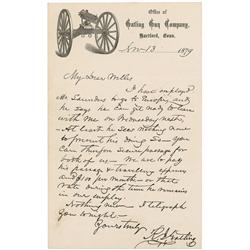 Office of
Gatling Gun Company,
Hartford, Conn.
Nov 13 1879
My Dear Miles
I have employed
Mr Saunders to go to Europe, and
he says he can get ready to leave
with me on Wednesday next.
At least he sees nothing now
to prevent his doing so. You
can therefore secure passage for
both of us. We are to pay
his passage & travelling expenses
and $100 per month or that
rate during the time he remains
in our employ.
Nothing new. I telegraph
you tonight.
Yours truly
R. J. Gatling